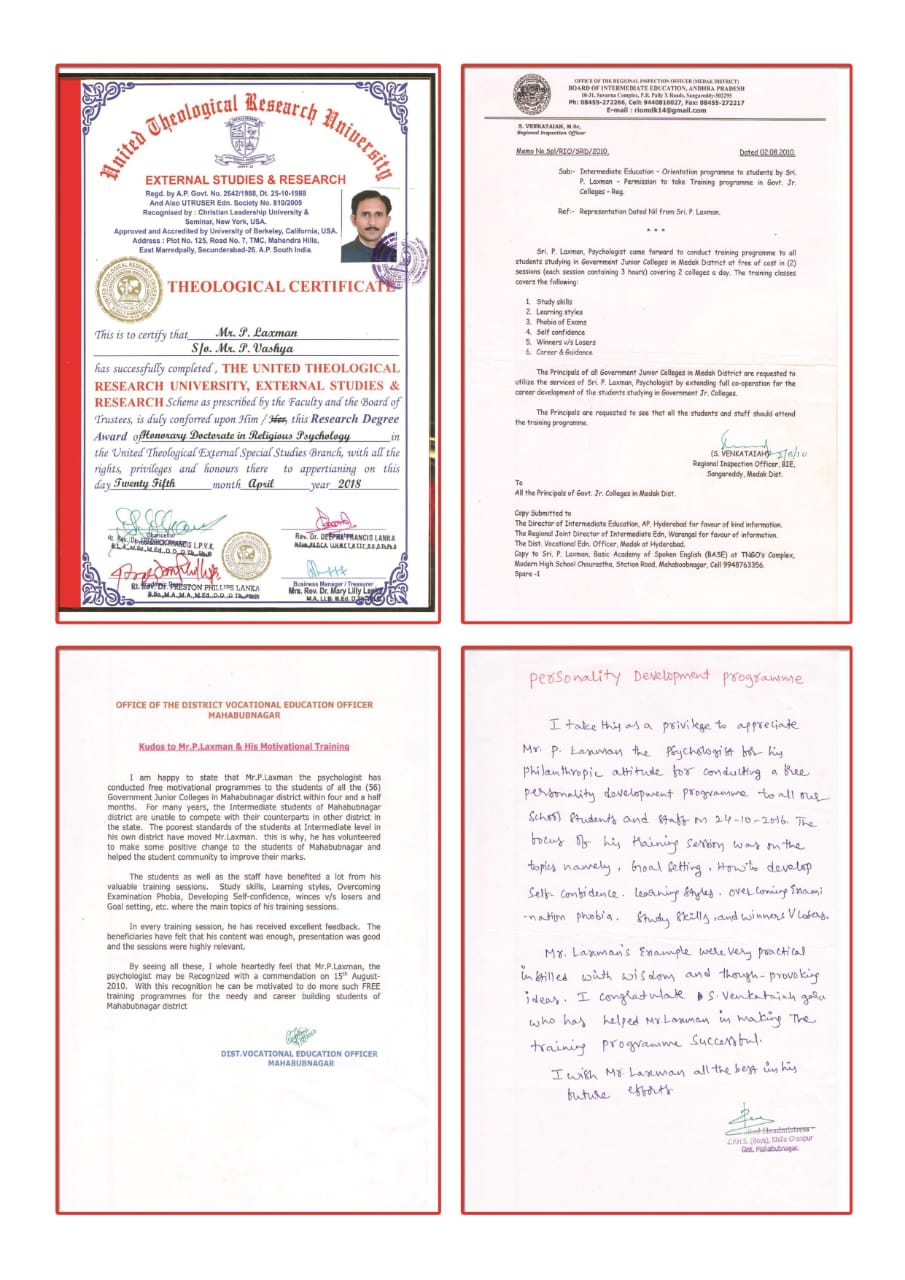 United Theological Research University
EXTERNAL STUDIES & RESEARCH
Regd. by A.P. Govt. No. 2642/1988, Dt. 25-10-1988
And Also UTRUSER Edn. Society No. 810/2005
Recognised by : Christian Leadership University &
Seminar, New York, USA.
Approved and Accredited by University of Berkeley, California, USA.
Address : Plot No. 125, Road No. 7, TMC, Mahendra Hills,
East Marredpally, Secunderabad-26. A.P. South India.
THEOLOGICAL CERTIFICATE
This is to certify that Mr. P. Laxman
S/o. Mr. P. Vashya
has successfully completed , THE UNITED THEOLOGICAL
RESEARCH UNIVERSITY, EXTERNAL STUDIES &
RESEARCH Scheme as prescribed by the Faculty and the Board of
Trustees, is duly conforred upon Him / Her, this Research Degree
Award of Honorary Doctorate in Religious Psychology in
the United Theological External Special Studies Branch, with all the
rights, privileges and honours there to appertianing on this
day Twenty Fifth month April year 2018
Chancellor
Rev. Dr. DEEPKA FRANCIS LANKA
Rt. Rev. Dr. PRESTON PHILLIPS LANKA
Business Manager / Treasurer
Mrs. Rev. Dr. Mary Lilly Lanka
OFFICE OF THE REGIONAL INSPECTION OFFICER (MEDAK DISTRICT)
BOARD OF INTERMEDIATE EDUCATION, ANDHRA PRADESH
10-31, Suvarna Complex, P.R. Pally X Roads, Sangareddy-502295
Ph: 08455-272266, Cell: 9440816027, Fax: 08455-272217
E-mail : riomdk14@gmail.com
S. VENKATAIAH, M.Sc,
Regional Inspection Officer
Memo No.Spl/RIO/SRD/2010, Dated 02.08.2010,
Sub:- Intermediate Education – Orientation programme to students by Sri.
P. Laxman – Permission to take Training programme in Govt. Jr.
Colleges – Reg.
Ref:- Representation Dated Nil from Sri. P. Laxman.
* * *
Sri. P. Laxman, Psychologist came forward to conduct training programme to all
students studying in Government Junior Colleges in Medak District at free of cost in (2)
sessions (each session containing 3 hours) covering 2 colleges a day. The training classes
covers the following:
1. Study skills
2. Learning styles
3. Phobia of Exams
4. Self confidence
5. Winners v/s Losers
6. Career & Guidance
The Principals of all Government Junior Colleges in Medak District are requested to
utilize the services of Sri. P. Laxman, Psychologist by extending full co-operation for the
career development of the students studying in Government Jr. Colleges.
The Principals are requested to see that all the students and staff should attend
the training programme.
(S. VENKATAIAH) 2/8/10
Regional Inspection Officer, BIE,
Sangareddy, Medak Dist.
To
All the Principals of Govt. Jr. Colleges in Medak Dist.
Copy Submitted to
The Director of Intermediate Education, AP, Hyderabad for favour of kind information.
The Regional Joint Director of Intermediate Edn, Warangal for favour of information.
The Dist. Vocational Edn, Officer, Medak at Hyderabad.
Copy to Sri. P. Laxman, Basic Academy of Spoken English (BASE) at TNGO's Complex,
Modern High School Chourastha, Station Road, Mahaboobnagar, Cell 9948763356.
Spare -1
OFFICE OF THE DISTRICT VOCATIONAL EDUCATION OFFICER
MAHABUBNAGAR
Kudos to Mr.P.Laxman & His Motivational Training
I am happy to state that Mr.P.Laxman the psychologist has
conducted free motivational programmes to the students of all the (56)
Government Junior Colleges in Mahabubnagar district within four and a half
months. For many years, the Intermediate students of Mahabubnagar
district are unable to compete with their counterparts in other district in
the state. The poorest standards of the students at Intermediate level in
his own district have moved Mr.Laxman. this is why, he has volunteered
to make some positive change to the students of Mahabubnagar and
helped the student community to improve their marks.
The students as well as the staff have benefited a lot from his
valuable training sessions. Study skills, Learning styles, Overcoming
Examination Phobia, Developing Self-confidence, winces v/s losers and
Goal setting, etc. where the main topics of his training sessions.
In every training session, he has received excellent feedback. The
beneficiaries have felt that his content was enough, presentation was good
and the sessions were highly relevant.
By seeing all these, I whole heartedly feel that Mr.P.Laxman, the
psychologist may be Recognized with a commendation on 15th August-
2010. With this recognition he can be motivated to do more such FREE
training programmes for the needy and career building students of
Mahabubnagar district
DIST.VOCATIONAL EDUCATION OFFICER
MAHABUBNAGAR
Personality Development programme
I take this as a privilege to appreciate
Mr. P. Laxman the Psychologist for his
philanthropic attitude for conducting a free
personality development programme to all our
School Students and staff on 24-10-2016. The
focus of his training session was on the
topics namely, Goal Setting, How to develop
Self confidence. learning styles. overcoming Exami
-nation phobia. Study skills, and winners V losers.
Mr. Laxman's Example were very practical
instilled with wisdom and though-provoking
ideas. I congratulate S. Venkataiah garu
who has helped Mr Laxman in making the
training programme successful.
I wish Mr. Laxman all the best in his
future efforts
Headmistress
Z.P.H.S. (Boys), Khilla Ghanpur
Dist. Mahabubnagar.